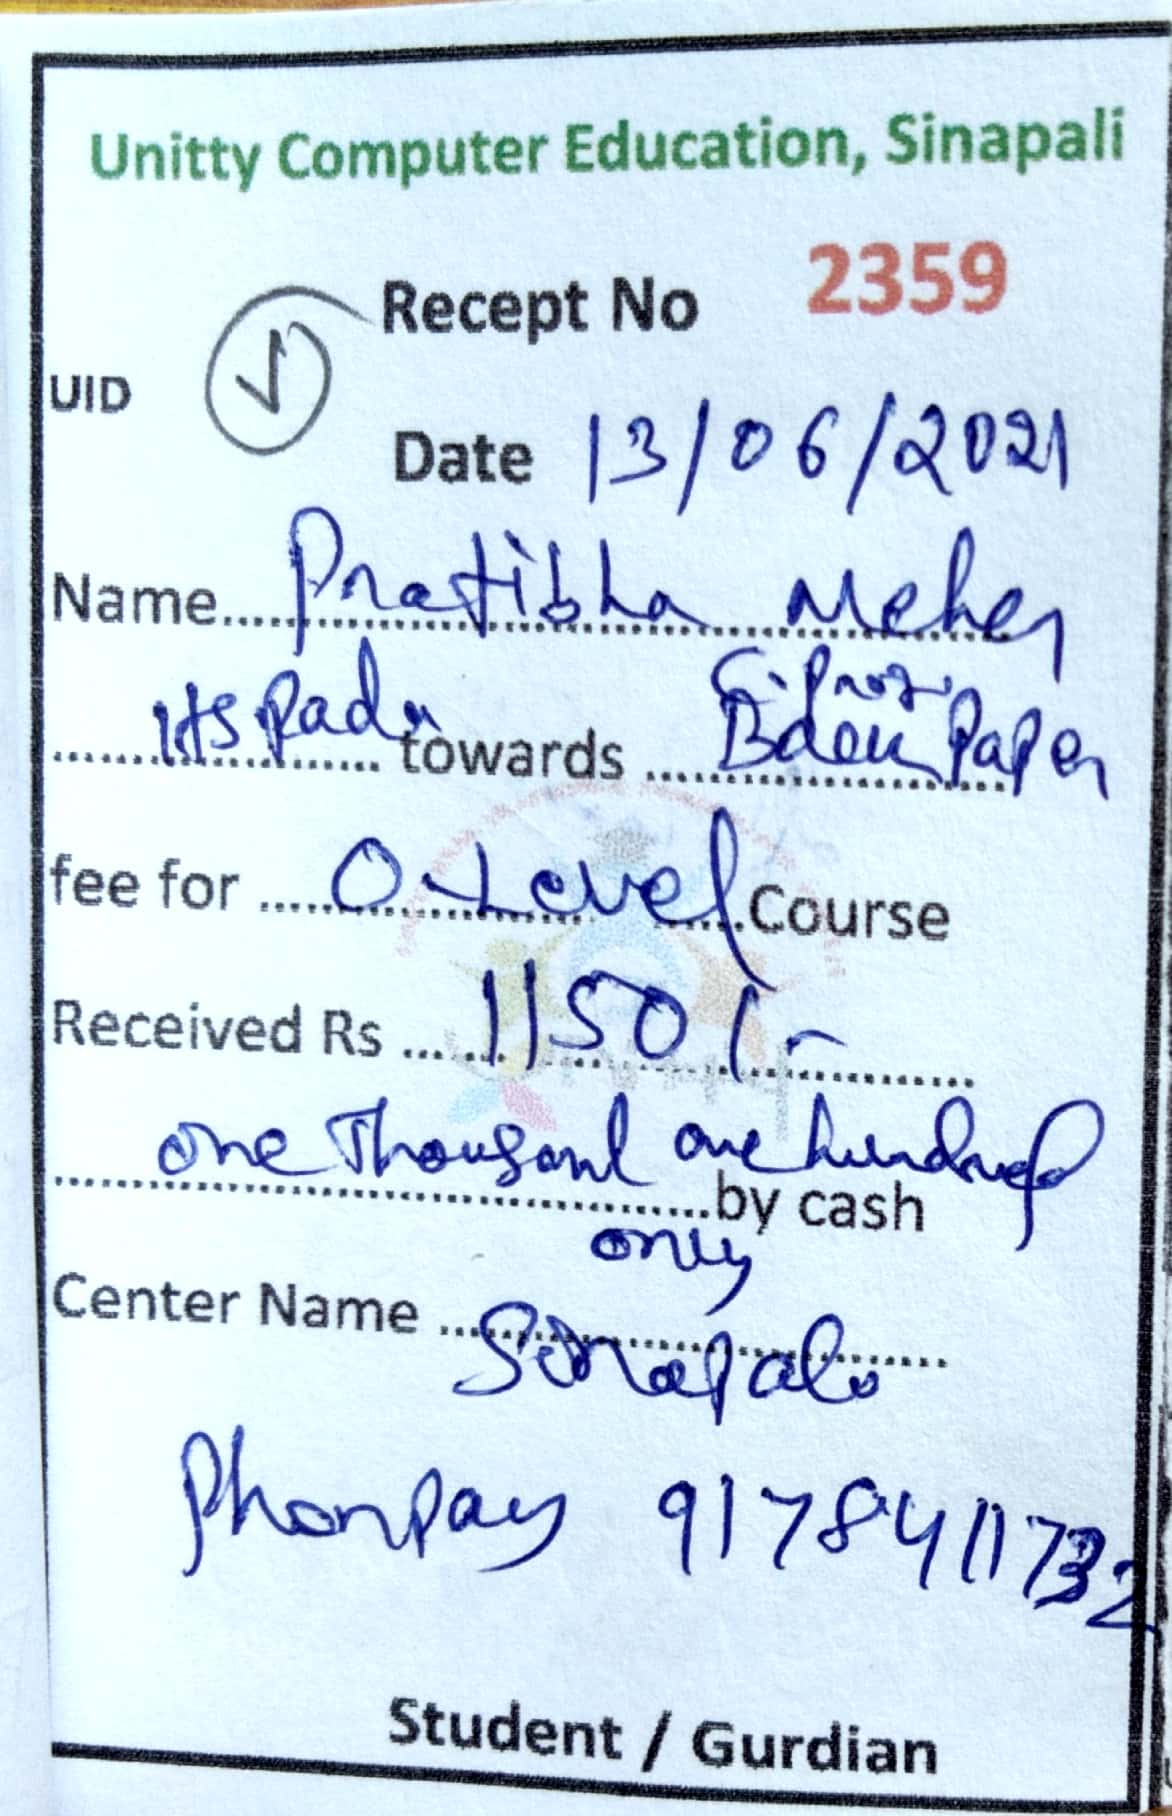 Unitty Computer Education, Sinapali
Recept No 2359
UID
Date 13/06/2021
Name.....Pratibha Meher
towards
Paper
fee for ....O-Level....Course
Received Rs ......1150/-
one Thousand one hundred
by cash
only
Center Name
Sinapali
Phonpay 9178411732
Student / Gurdian